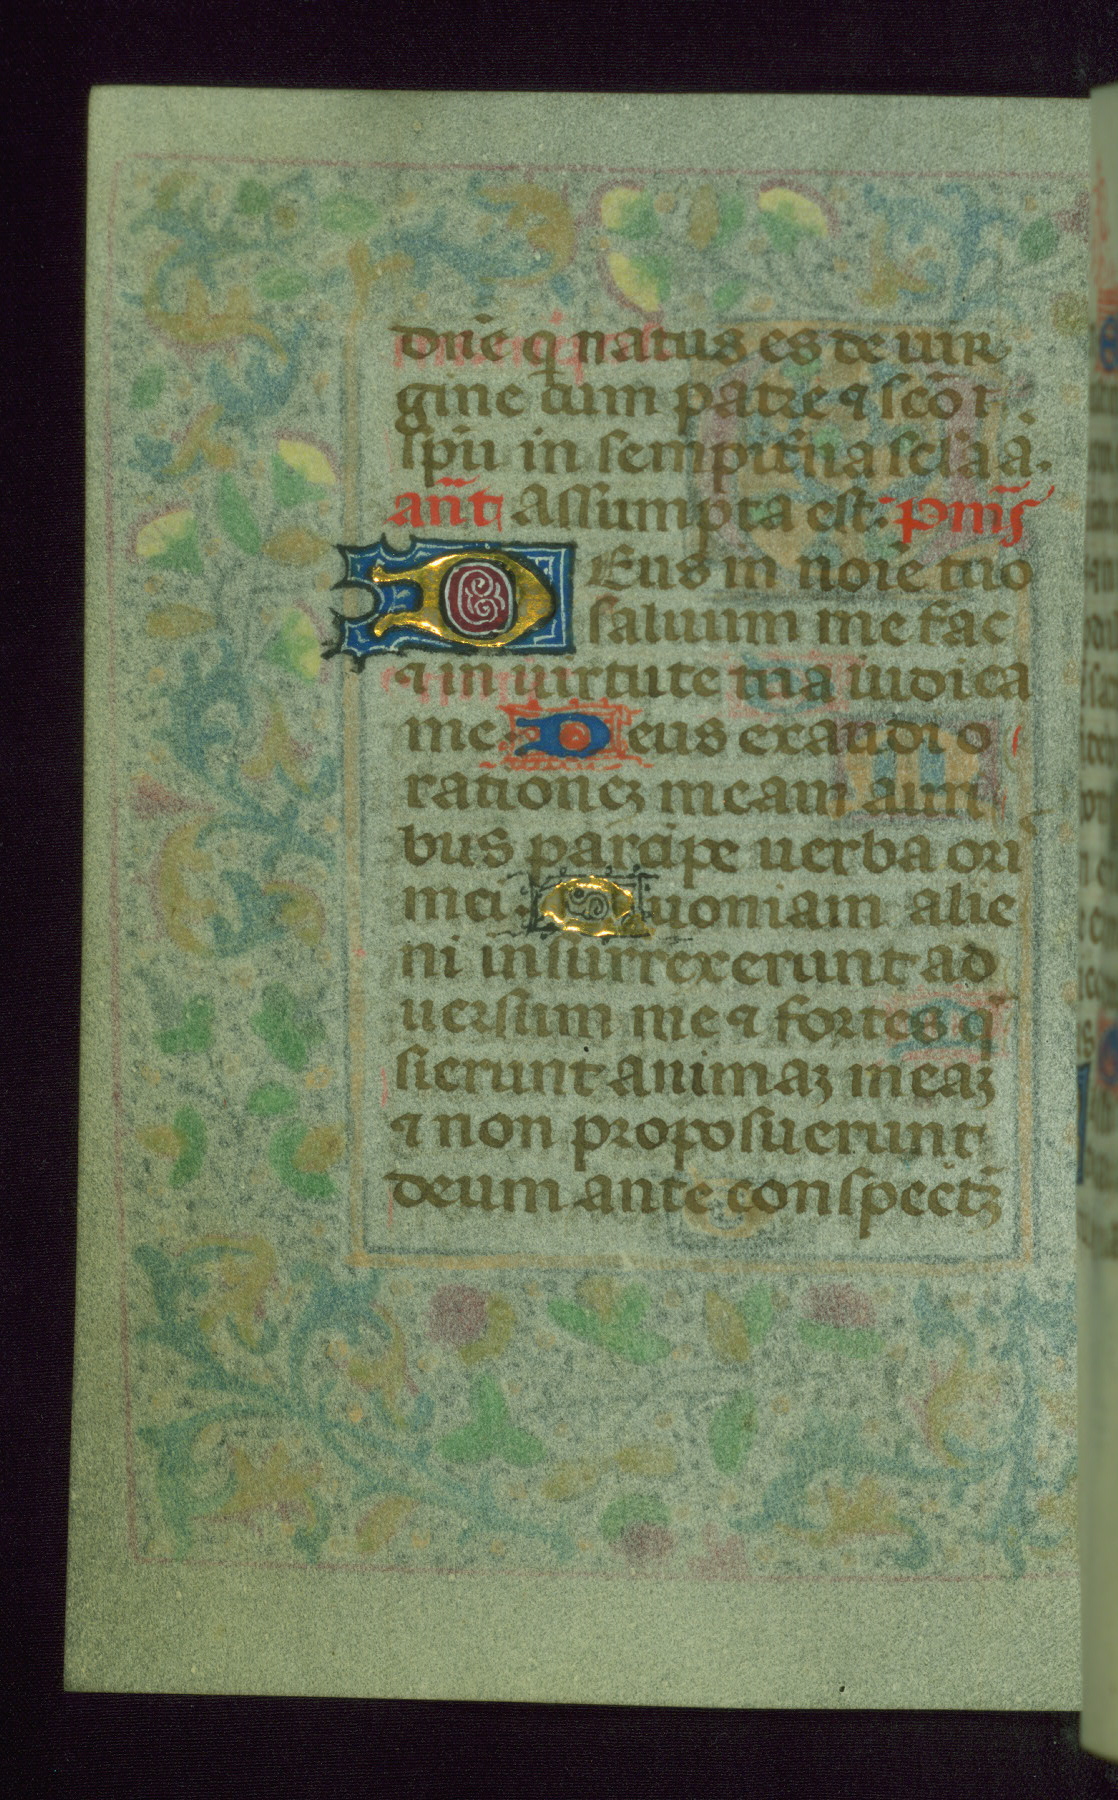 dñe q̇ natus es de uir
gine cum patre ⁊ scō ·
spū in sempit̄na scl̄a ā.
añt Assumpta est. pm̄s
Deus in noīe tuo
saluum me fac
⁊ in uirtute tua iudica
me Deus exaudi o
rationeꝫ meam auri
bus parcipe uerba ori
mei. Quoniam alie
ni insurrexerunt ad
uersum me ⁊ fortes q̇
sierunt animaꝫ meaꝫ
⁊ non proposuerunt
deum ante conspectꝫ